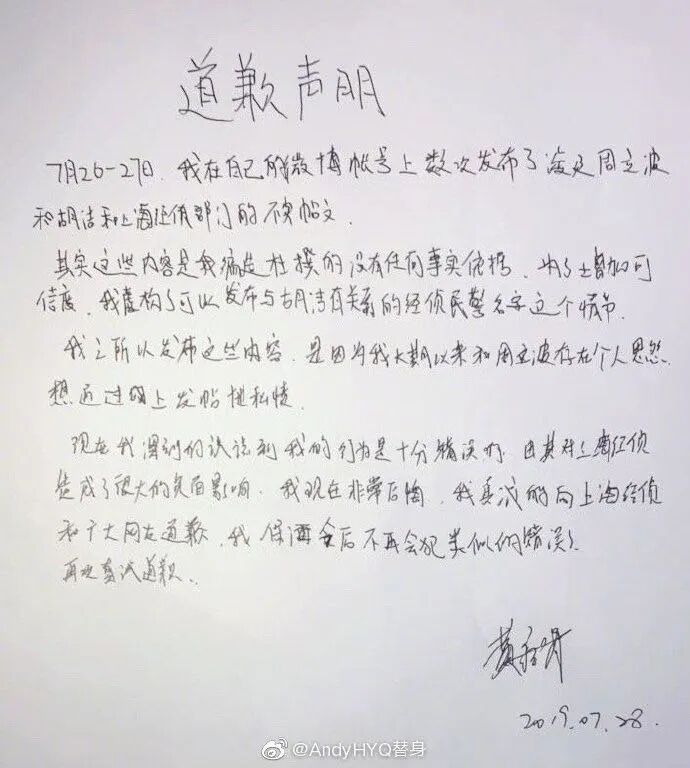 道歉声明
7月26-27日，我在自己的微博帐号上数次发布了涉及周立波
和胡洁和上海经侦部门的不实帖文.
其实这些内容是我编造杜撰的没有任何事实依据，为了增加可
信度，我虚构了可以发布与胡洁有关系的经侦民警名字这个情节.
我之所以发布这些内容，是因为我长期以来和周立波存在个人恩怨.
想通过网上发帖泄私愤.
现在我深刻的认识到我的行为是十分错误的，尤其对上海经侦
造成了很大的负面影响，我现在非常后悔，我真诚的向上海经侦
和广大网友道歉，我保证今后不再会犯类似的错误.
再次真诚道歉.
黄
2019.07.28.
@AndyHYQ替身